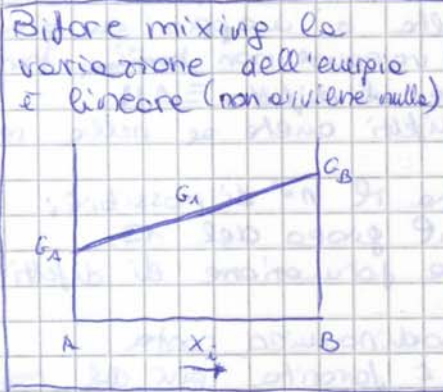 Bifore mixing la
variazione dell'energia
è lineare (non avviene nulla)
G_B
G_1
G_A
A X_i B